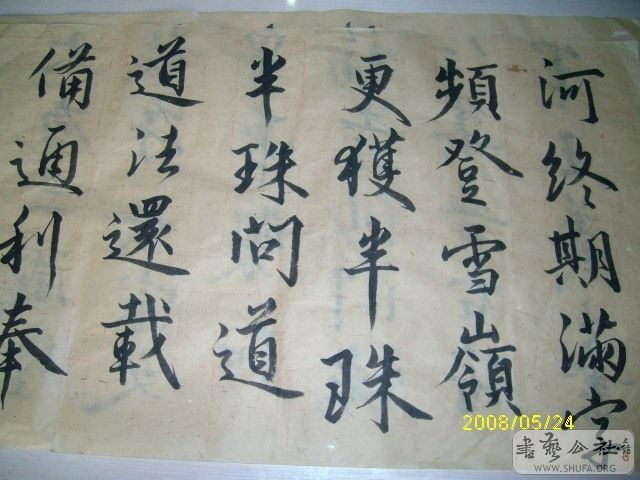 河終期滿字
頻登雪嶺
更獲半珠
半珠問道
道法還載
備通利奉
2008/05/24
書藝公社
WWW.SHUFA.ORG